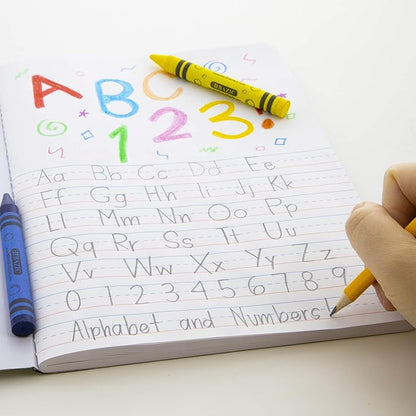 A B C
1 2 3
Aa Bb Cc Dd Ee
Ff Gg Hh Ii Jj Kk
Ll Mm Nn Oo Pp
Qq Rr Ss Tt Uu
Vv Ww Xx Yy Zz
0 1 2 3 4 5 6 7 8 9
Alphabet and Numbers!